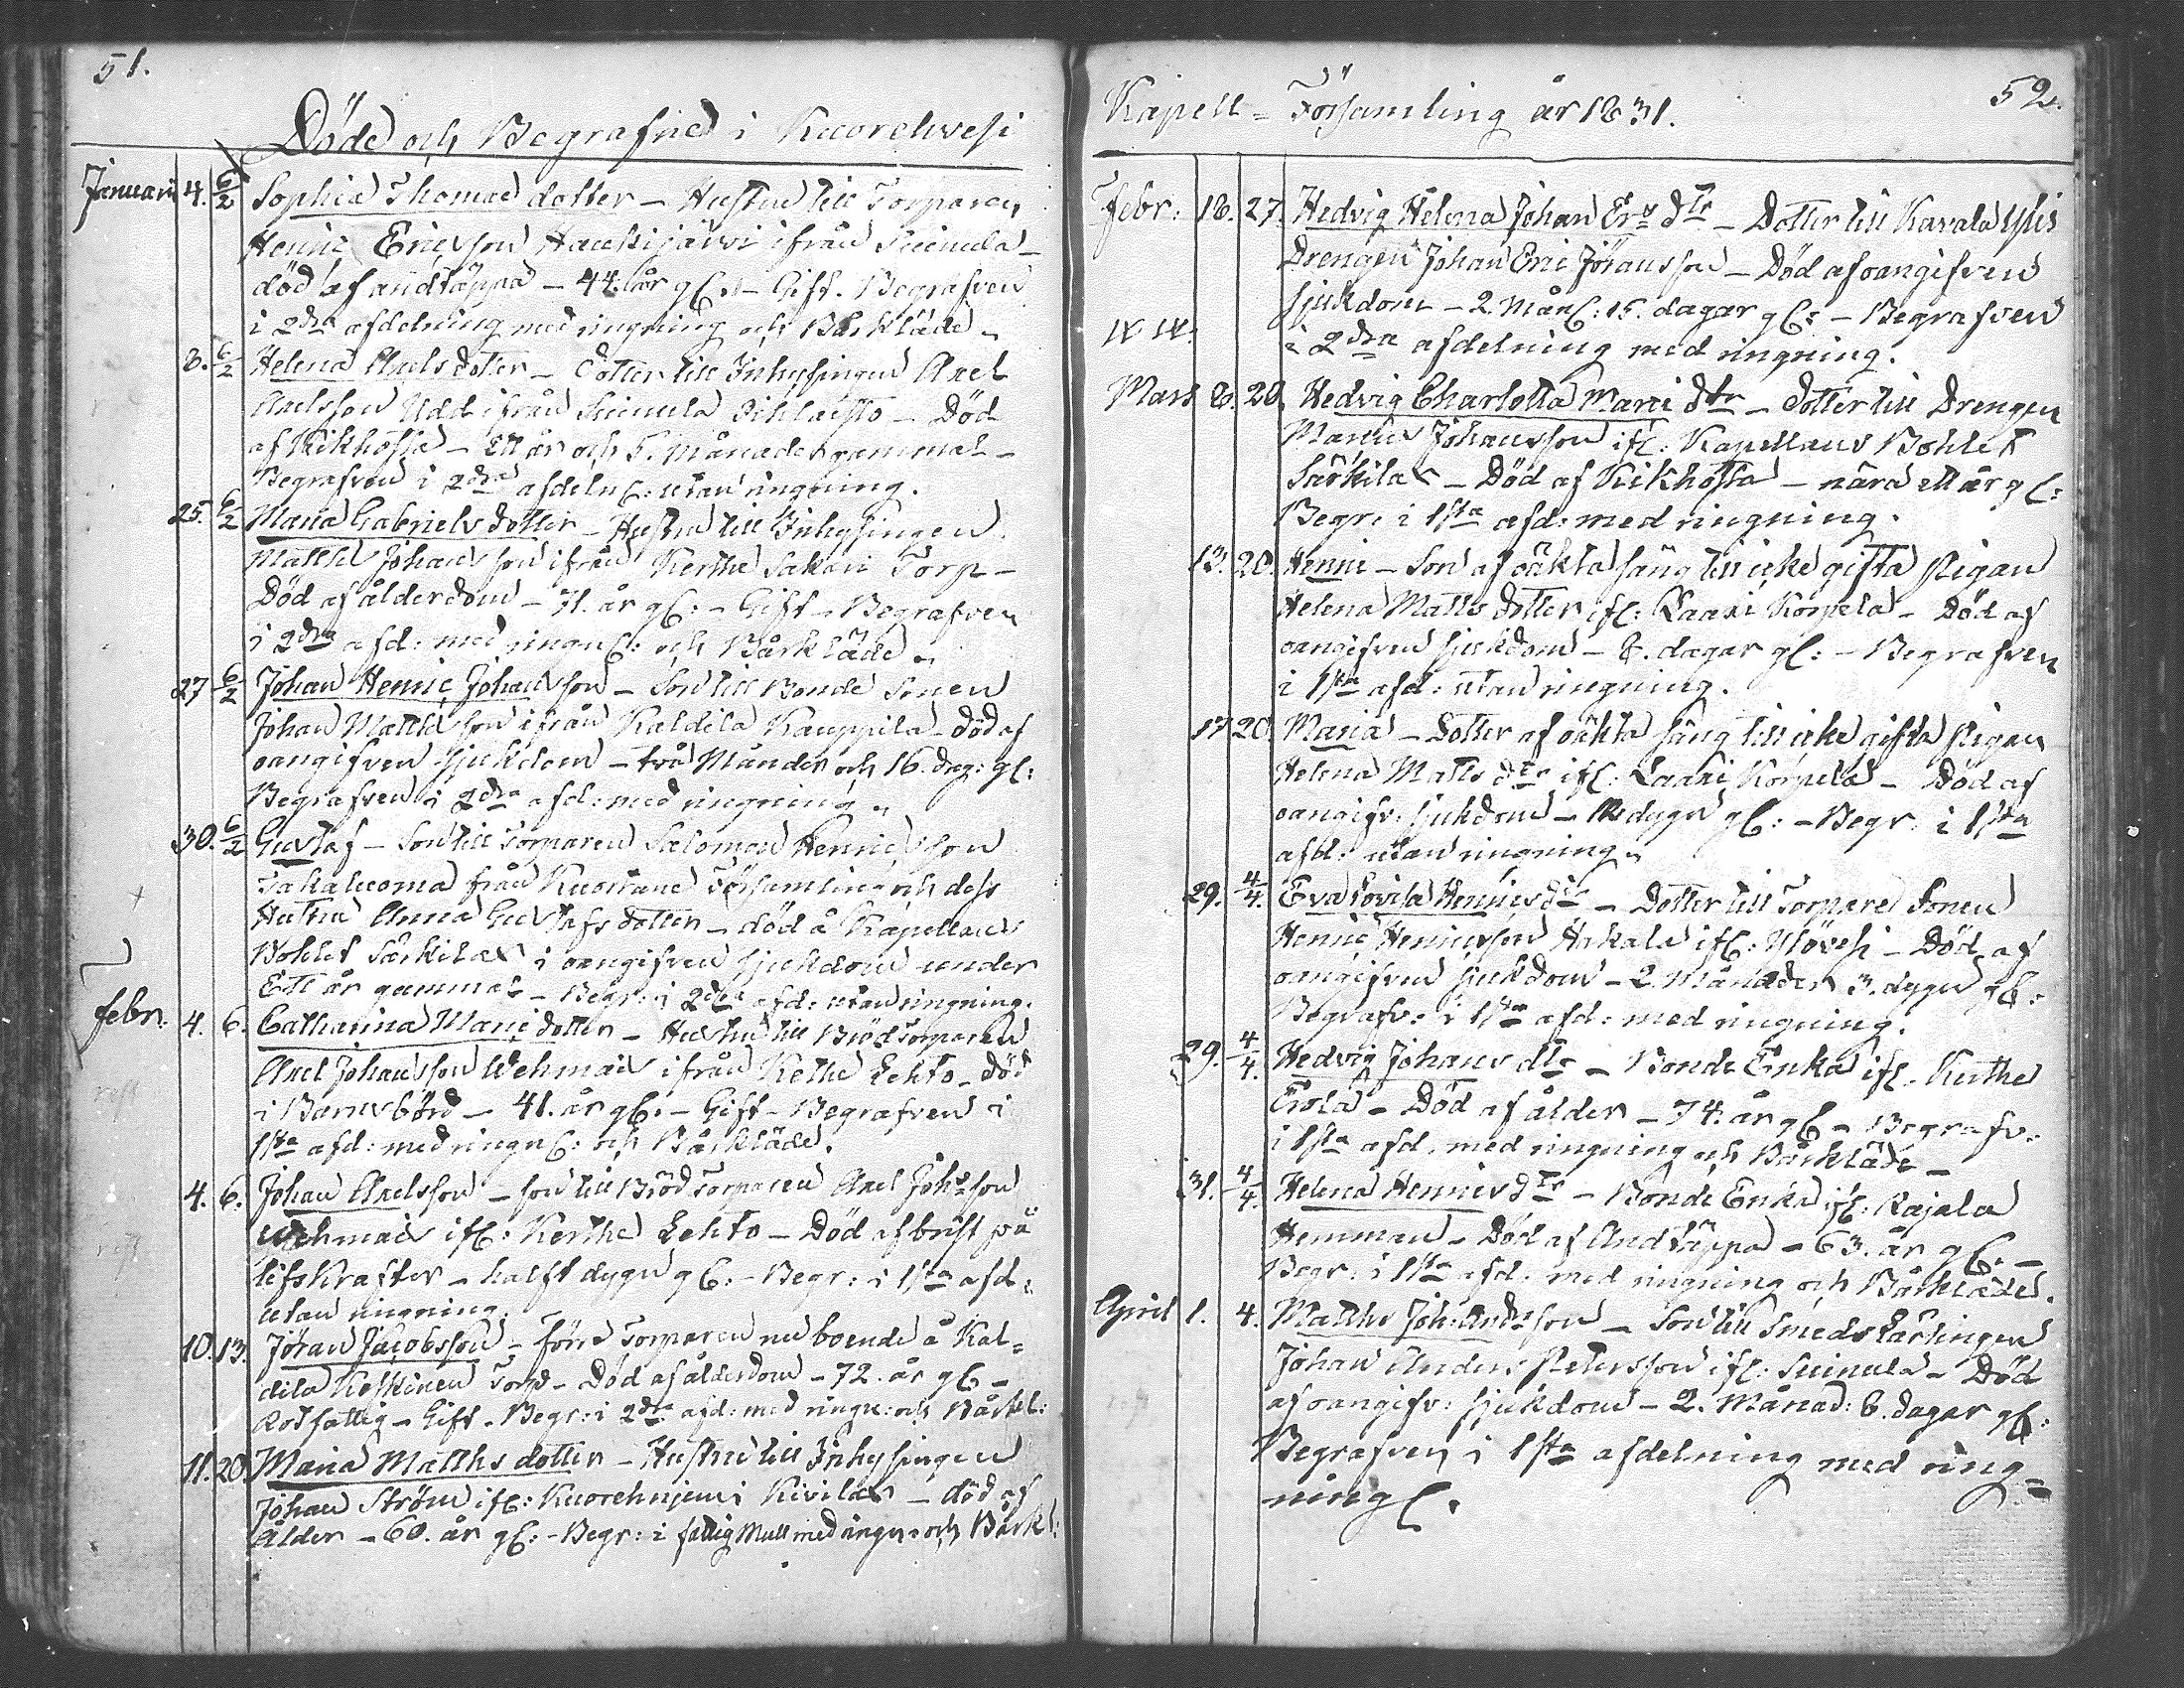 51.
Döde och Begrafne i Kuorehvesi
Januarii 4. 6/2 Sophia Thomae dotter – Hustru till Torparen
Henric Ericsson Haukijärvi ifrån Suinula –
död af andtäppa – 44. år gl: – Gift. Begrafven
i 2dra afdelning med ringning och Bårkläde –
8. 6/2 Helena Axelsdotter – dotter till Inhysingen Axel
Axelsson Udd ifrån Suinula – Död
af Kikhosta – Ett år och 5. Månader gammal –
Begrafven i 2dra afdeln: utan ringning.
25. 6/2 Maria Gabrielsdotter – Hustru till Inhysingen
Matths Johansson ifrån Kerthe Sakari Torp –
Död af ålderdom – 71. år gl: – Gift – Begrafven
i 2dra afd: med ringn: och Bårkläde –
27 6/2 Johan Henric Johansson – Son till Bonde Sonen
Johan Matthsson ifrån Kaldila Kauppila – död af
oangifven sjukdom – två Månader och 16. dag: gl:
Begrafven i 2dra afd: med ringning –
30. 6/2 Gustaf – Son till Torparen Salomon Henricsson
Takaluoma från Kuortane Församling och dess
Hustru Anna Gustafsdotter – död å Kapellans
Bohlet Särkilax i oangifven sjukdom under
Ett år gammal – Begr: i 2dra afd: utan ringning.
febr. 4. 6. Catharina Mariedotter – Hustru till Brödtorparen
Axel Johansson Wehmais ifrån Kerthe Lehto – Död
i Barnsbörd – 41. år gl: – Gift – Begrafven i
1sta afd: med ringn: och Bårkläde.
4. 6. Johan Axelsson – son till Brödtorparen Axel Johsson
Wehmais ifr: Kerthe Lehto – Död af brist på
lifskrafter – halft dygn gl: – Begr: i 1sta afd:
utan ringning.
10. 13. Jöran Jacobsson – förre Torparen nu boende å Kal=
dila Keskinen Torp – Död af ålderdom – 72. år gl –
Rotfattig – Gift – Begr: i 2dra afd: med ringn: och Bårkl:
11. 20. Maria Matthsdotter – Hustru till Inhysingen
Johan Ström ifr: Kuorehniemi Kivilax – död af
Ålder – 60. år gl: – Begr: i fattig Mull med ringn: och Bårkl:
52.
Kapell = Församling år 1831.
Febr: 18. 27. Hedvig Helena Johan Ers dtr – Dotter till Kavala Ylis
Drengen Johan Eric Jöransson – Död af oangifven
sjukdom – 2. Mån: 15. dagar gl: – Begrafven
i 2dra afdelning med ringning.
Mars 8. 20. Hedvig Charlotta Marie dtr – dotter till Drengen
Johansson ifr: Kapellans Bohlet
Särkilax – Död af Kikhosta – nära ett år gl:
Begr. i 1sta afd: med ringning.
13. 20. Henric – Son af oäkta säng till icke gifta Pigan
Helena Matts dotter ifr: Laari Korpela – Död af
oangifven sjukdom – 8. dagar gl: – Begrafven
i 1sta afd: utan ringning.
17 20. Maria – Dotter af oäkta säng till icke gifta Pigan
Helena Matts dtr ifr: Laari Korpela – Död af
oangifv: sjukdom – dygn gl: – Begr: i 1sta
afd: utan ringning.
29. 4/4. Eva Lovisa Henricsdtr – Dotter till Torpare Sonen
Henric Henricsson Hakala ifr: Ylövesi – Död af
oangifven sjukdom – 2. Månader 3. dygn gl:
Begrafv: i 1sta afd: med ringning.
29. 4/4. Hedvig Johans dtr – Bonde Enka ifr: Kerthe
Erola – Död af ålder – 74. år gl – Begrafv.
i 1sta afd. med ringning och Bårkläde –
31. 4/4. Helena Henricsdtr – Bonde Enka ifr: Rajala
Hemman – Död af Andtäppa – 63. år gl: –
Begr: i 1sta afd. med ringning och Bårkläde.
April 1. 4. Matths Joh: Andsson – Son till Smeds Lärlingen
Johan Anders Petersson ifr: Suinula – Död
af oangifv: sjukdom – 2. Månad: 8. dagar gl:
Begrafven i 1sta afdelning med ring=
ning.